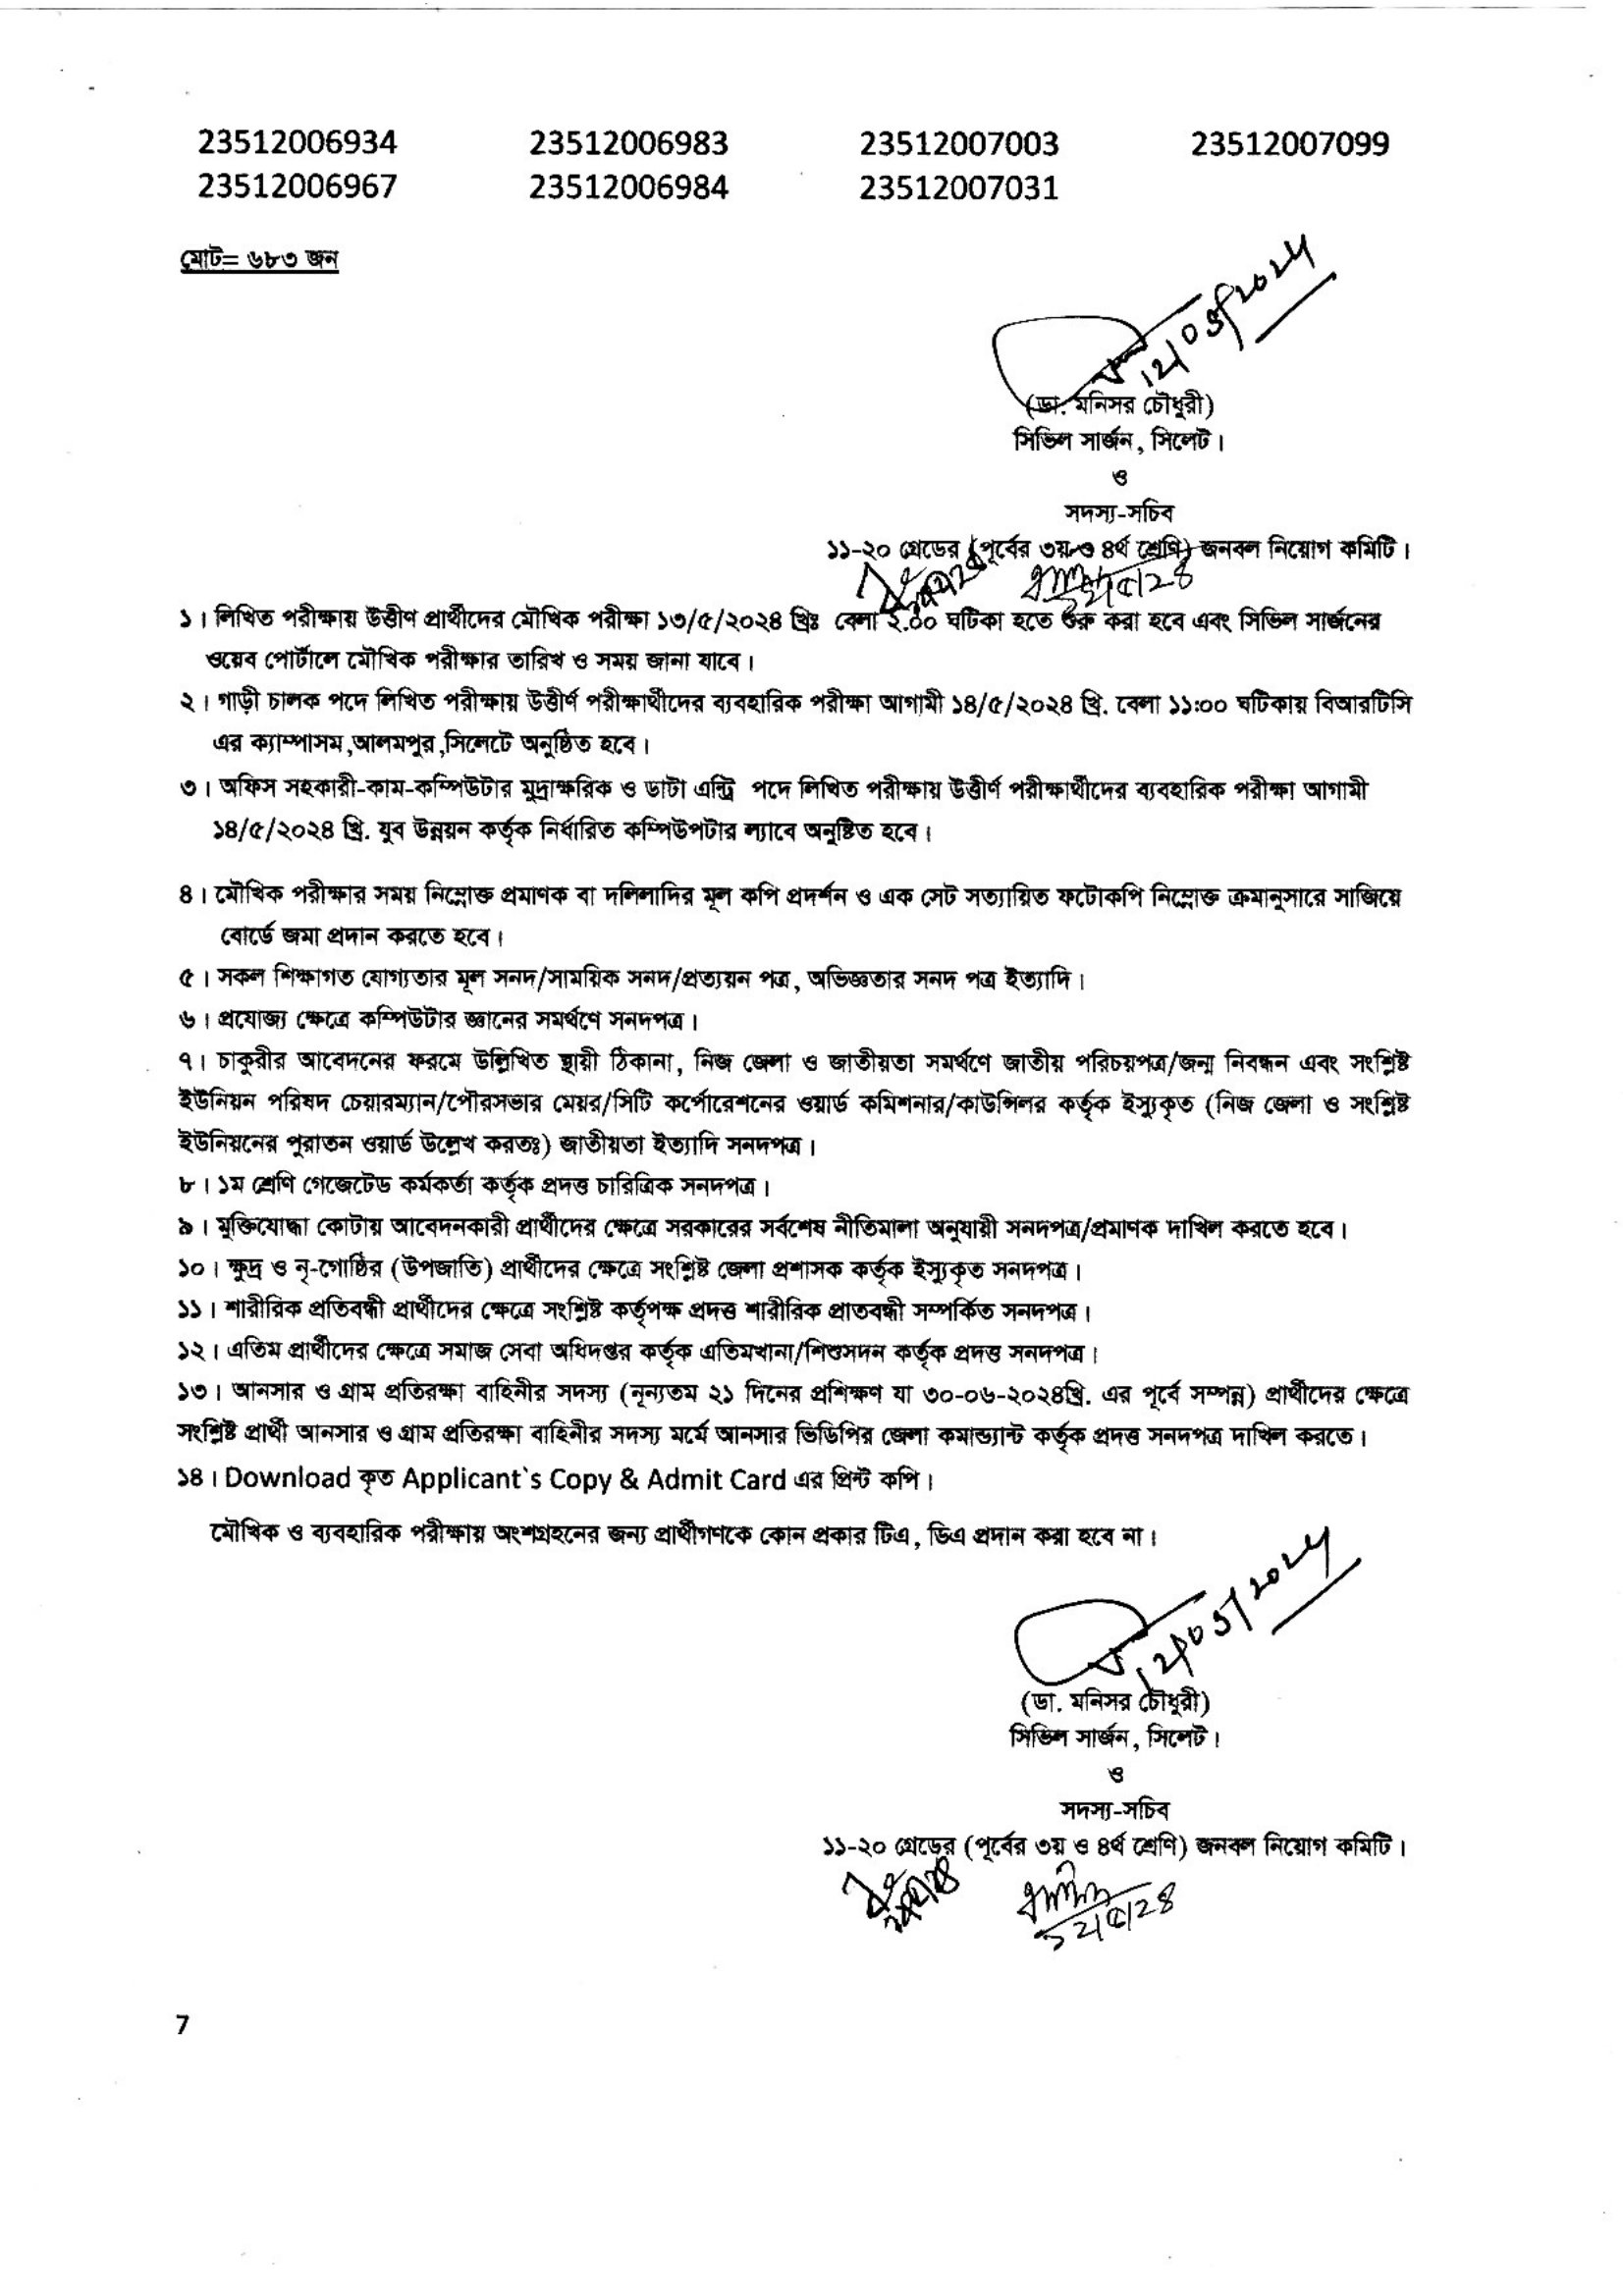 23512006934 23512006983 23512007003 23512007099
23512006967 23512006984 23512007031
মোট= ৬৮৩ জন
12/05/2024
(ডা. মনিসর চৌধুরী)
সিভিল সার্জন, সিলেট।
ও
সদস্য-সচিব
১১-২০ গ্রেডের (পূর্বের ৩য় ও ৪র্থ শ্রেণি) জনবল নিয়োগ কমিটি।
১। লিখিত পরীক্ষায় উত্তীণ প্রার্থীদের মৌখিক পরীক্ষা ১৩/৫/২০২৪ খ্রিঃ বেলা ২.০০ ঘটিকা হতে শুরু করা হবে এবং সিভিল সার্জনের
ওয়েব পোর্টালে মৌখিক পরীক্ষার তারিখ ও সময় জানা যাবে।
২। গাড়ী চালক পদে লিখিত পরীক্ষায় উত্তীর্ণ পরীক্ষার্থীদের ব্যবহারিক পরীক্ষা আগামী ১৪/৫/২০২৪ খ্রি. বেলা ১১:০০ ঘটিকায় বিআরটিসি
এর ক্যাম্পাসম,আলমপুর,সিলেটে অনুষ্ঠিত হবে।
৩। অফিস সহকারী-কাম-কম্পিউটার মুদ্রাক্ষরিক ও ডাটা এন্ট্রি পদে লিখিত পরীক্ষায় উত্তীর্ণ পরীক্ষার্থীদের ব্যবহারিক পরীক্ষা আগামী
১৪/৫/২০২৪ খ্রি. যুব উন্নয়ন কর্তৃক নির্ধারিত কম্পিউপটার ল্যাবে অনুষ্টিত হবে।
৪। মৌখিক পরীক্ষার সময় নিম্নোক্ত প্রমাণক বা দলিলাদির মূল কপি প্রদর্শন ও এক সেট সত্যায়িত ফটোকপি নিম্নোক্ত ক্রমানুসারে সাজিয়ে
বোর্ডে জমা প্রদান করতে হবে।
৫। সকল শিক্ষাগত যোগ্যতার মূল সনদ/সাময়িক সনদ/প্রত্যয়ন পত্র, অভিজ্ঞতার সনদ পত্র ইত্যাদি।
৬। প্রযোজ্য ক্ষেত্রে কম্পিউটার জ্ঞানের সমর্থণে সনদপত্র।
৭। চাকুরীর আবেদনের ফরমে উল্লিখিত স্থায়ী ঠিকানা, নিজ জেলা ও জাতীয়তা সমর্থণে জাতীয় পরিচয়পত্র/জন্ম নিবন্ধন এবং সংশ্লিষ্ট
ইউনিয়ন পরিষদ চেয়ারম্যান/পৌরসভার মেয়র/সিটি কর্পোরেশনের ওয়ার্ড কমিশনার/কাউন্সিলর কর্তৃক ইস্যুকৃত (নিজ জেলা ও সংশ্লিষ্ট
ইউনিয়নের পুরাতন ওয়ার্ড উল্লেখ করতঃ) জাতীয়তা ইত্যাদি সনদপত্র।
৮। ১ম শ্রেণি গেজেটেড কর্মকর্তা কর্তৃক প্রদত্ত চারিত্রিক সনদপত্র।
৯। মুক্তিযোদ্ধা কোটায় আবেদনকারী প্রার্থীদের ক্ষেত্রে সরকারের সর্বশেষ নীতিমালা অনুযায়ী সনদপত্র/প্রমাণক দাখিল করতে হবে।
১০। ক্ষুদ্র ও নৃ-গোষ্ঠির (উপজাতি) প্রার্থীদের ক্ষেত্রে সংশ্লিষ্ট জেলা প্রশাসক কর্তৃক ইস্যুকৃত সনদপত্র।
১১। শারীরিক প্রতিবন্ধী প্রার্থীদের ক্ষেত্রে সংশ্লিষ্ট কর্তৃপক্ষ প্রদত্ত শারীরিক প্রাতবন্ধী সম্পর্কিত সনদপত্র।
১২। এতিম প্রার্থীদের ক্ষেত্রে সমাজ সেবা অধিদপ্তর কর্তৃক এতিমখানা/শিশুসদন কর্তৃক প্রদত্ত সনদপত্র।
১৩। আনসার ও গ্রাম প্রতিরক্ষা বাহিনীর সদস্য (নূন্যতম ২১ দিনের প্রশিক্ষণ যা ৩০-০৬-২০২৪খ্রি. এর পূর্বে সম্পন্ন) প্রার্থীদের ক্ষেত্রে
সংশ্লিষ্ট প্রার্থী আনসার ও গ্রাম প্রতিরক্ষা বাহিনীর সদস্য মর্মে আনসার ভিডিপির জেলা কমান্ড্যান্ট কর্তৃক প্রদত্ত সনদপত্র দাখিল করতে।
১৪। Download কৃত Applicant`s Copy & Admit Card এর প্রিন্ট কপি।
মৌখিক ও ব্যবহারিক পরীক্ষায় অংশগ্রহনের জন্য প্রার্থীগণকে কোন প্রকার টিএ, ডিএ প্রদান করা হবে না।
12/05/2024
(ডা. মনিসর চৌধুরী)
সিভিল সার্জন, সিলেট।
ও
সদস্য-সচিব
১১-২০ গ্রেডের (পূর্বের ৩য় ও ৪র্থ শ্রেণি) জনবল নিয়োগ কমিটি।
১২/৫/২৪
7